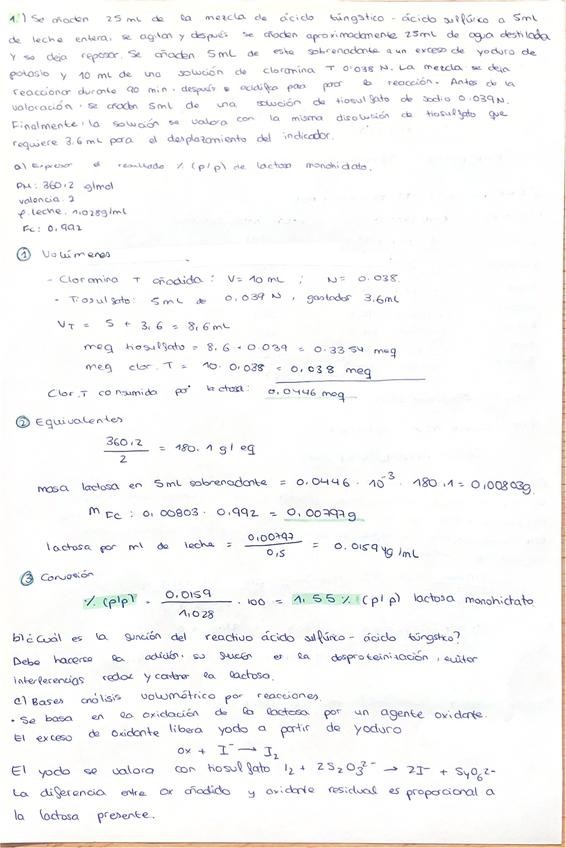 1.) Se añaden 25 ml de la mezcla de ácido túngstico - ácido sulfúrico a 5ml
de leche entera, se agitan y después se añaden aproximadamente 25ml de agua destilada
y se deja reposar. Se añaden 5mL de este sobrenadante a un exceso de yoduro de
potasio y 10 ml de una solución de cloramina T 0'038 N. La mezcla se deja
reaccionar durante 90 min. después se acidifica para parar la reacción. Antes de la
valoración, se añaden 5ml de una solución de tiosulfato de sodio 0.039N.
Finalmente, la solución se valora con la misma disolución de tiosulfato que
requiere 3.6 mL para el desplazamiento del indicador.
a) Expresar el resultado % (p/p) de lactosa monohidrato.
PM: 360,2 g/mol
valencia: 2
ρ leche: 1,028g/ml
Fc: 0,992
① Volúmenes
- Cloramina T añadida: V= 10 mL ; N= 0.038.
- Tiosulfato: 5mL de 0,039 N, gastados 3,6mL
VT = 5 + 3,6 = 8,6 mL
meq tiosulfato = 8.6 · 0.039 = 0.3354 meq
meq clor. T = 10 · 0,038 = 0,038 meq
Clor.T consumida por lactosa: 0,0446 meq
② Equivalentes
360,2 / 2 = 180.1 g/eq
masa lactosa en 5ml sobrenadante = 0,0446 · 10⁻³ · 180,1 = 0,00803g.
m Fc: 0,00803 · 0,992 = 0,00797g
lactosa por ml de leche = 0,00797 / 0,5 = 0,0159 g/mL
③ Conversión
% (p/p) = 0,0159 / 1,028 · 100 = 1,55% (p/p) lactosa monohidrato
b) ¿Cuál es la función del reactivo ácido sulfúrico - ácido túngstico?
Debe hacerse la adición, su función es la desproteinización, evitar
interferencias redox y
la lactosa.
c) Bases análisis volumétrico por reacciones.
• Se basa en la oxidación de la lactosa por un agente oxidante.
El exceso de oxidante libera yodo a partir de yoduro
Ox + I⁻ → I₂
El yodo se valora con tiosulfato I₂ + 2S₂O₃²⁻ → 2I⁻ + S₄O₆²⁻
La diferencia entre ox añadido y oxidante residual es proporcional a
la lactosa presente.